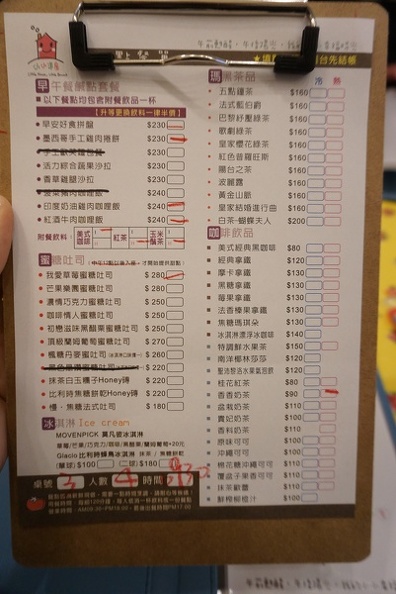 早午餐輕點套餐
以下餐點均包含附餐飲品一杯
【升等更換飲料一律半價】
早安好食拼盤 $230
墨西哥手工雞肉捲餅 $230
活力綜合蔬果沙拉 $230
香草雞腿沙拉 $230
印度奶油雞肉咖哩飯 $240
紅酒牛肉咖哩飯 $240
附餐飲料 美式咖啡 紅茶 玉米鬚茶
蜜糖吐司
我愛草莓蜜糖吐司 $280
芒果樂園蜜糖吐司 $280
濃情巧克力蜜糖吐司 $250
咖啡情人蜜糖吐司 $250
初戀滋味黑醋栗蜜糖吐司 $250
頂級蘭姆葡萄蜜糖吐司 $270
楓糖丹麥蜜吐司 $260
$220
抹茶白玉糰子Honey磚 $220
比利時焦糖餅乾Honey磚 $220
慢‧焦糖法式吐司 $180
冰淇淋 Ice cream
MOVENPICK 莫凡彼冰淇淋
Glacio 比利時蜂鳥冰淇淋
(單球) $100 (二球) $180
桌號 3 人數 4 時間
瑪黑茶品 冷 熱
五點鐘茶 $160
法式藍伯爵 $160
巴黎紓壓綠茶 $160
歌劇綠茶 $160
皇家櫻花綠茶 $160
紅色普羅旺斯 $160
陽台之茶 $160
波麗露 $160
黃金山脈 $160
皇家結婚進行曲 $160
白茶-蝴蝶夫人 $200
咖啡飲品
美式經典黑咖啡 $80
經典拿鐵 $120
摩卡拿鐵 $130
黑糖拿鐵 $130
莓果拿鐵 $130
法香榛果拿鐵 $130
焦糖瑪琪朵 $130
冰淇淋漂浮冰咖啡 $140
特調鮮水果茶 $150
南洋椰林莎莎 $120
$120
桂花紅茶 $80
香香奶茶 $90
盆栽奶茶 $110
貴妃奶茶 $100
香料奶茶 $110
原味可可 $100
沖繩可可 $110
棉花糖沖繩可可 $110
覆盆子果香可可 $110
抹茶歐蕾 $110
鮮榨柳橙汁 $100